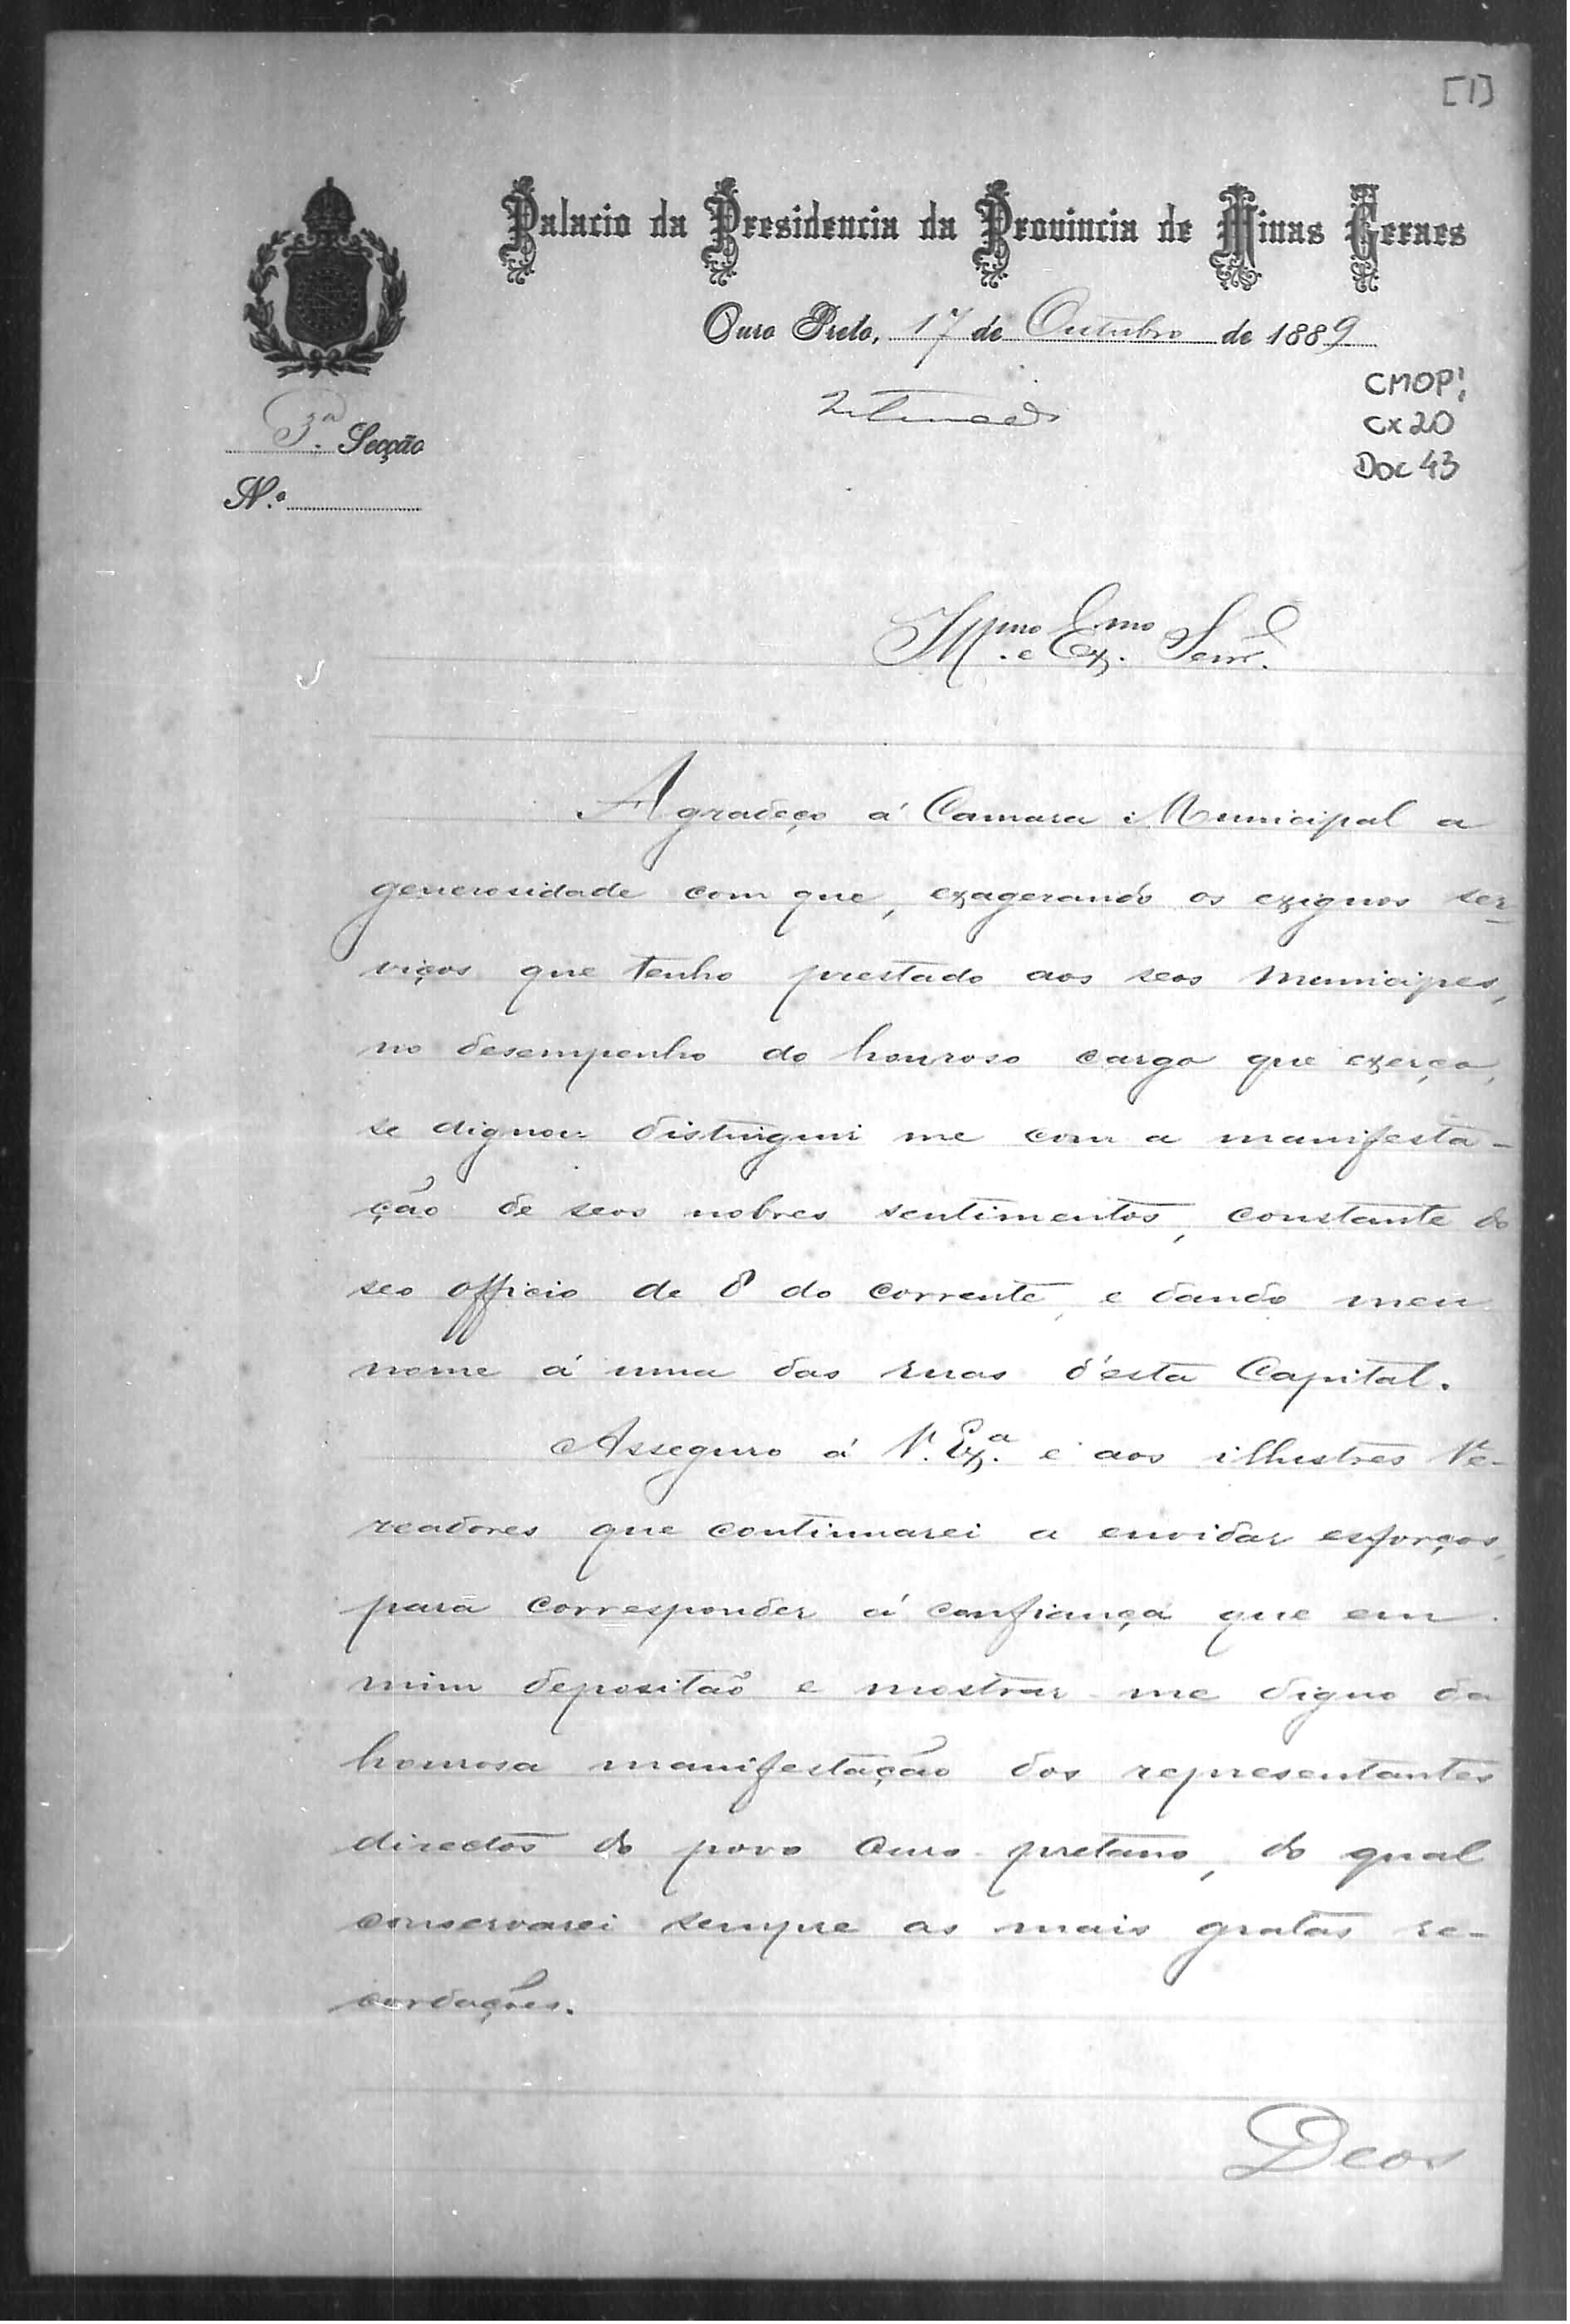 [1]
Palacio da Presidencia da Provincia de Minas Geraes
Ouro Preto, 17 de Outubro de 1889
CMOP:
Cx 20
Doc 43
3.ª Secção
N.º
Ill.mo e Ex.mo Senr.
Agradeço á Camara Municipal a
generosidade com que, exagerando os exiguos ser-
viços que tenho prestado aos seos Municipes,
no desempenho do honroso cargo que exerço,
se dignou distinguir me com a manifesta-
ção de seos nobres sentimentos, constante do
seo officio de 8 do corrente, e dando meu
nome á uma das ruas d'esta Capital.
Asseguro á V. Ex.ª e aos illustres Ve-
readores que continuarei a envidar esforços,
para corresponder á confiança que em
mim depositão e mostrar-me digno da
honrosa manifestação dos representantes
directos do povo Ouro-pretano, do qual
conservarei sempre as mais gratas re-
cordações.
Deos